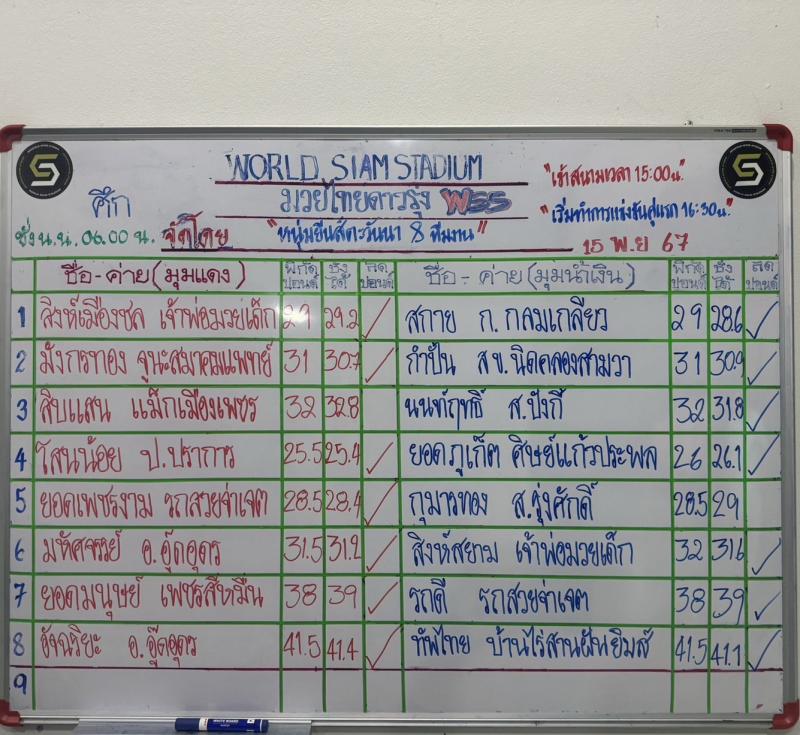 WORLD SIAM STADIUM
"เข้าสนามเวลา 15:00น."
ศึก มวยไทยดาวรุ่ง WSS
"เริ่มทำการแข่งขันคู่แรก 16:30น."
ชั่ง น.น. 06.00 น. จัดโดย "หนุ่มยืนสัตะวันนา 8 ทีมงาน" 15 พ.ย 67
ชื่อ-ค่าย(มุมแดง) พิกัดปอนด์ ชั่งได้ ลดปอนด์ ชื่อ-ค่าย(มุมน้ำเงิน) พิกัดปอนด์ ชั่งได้ ลดปอนด์
1 สิงห์เมืองชล เจ้าพ่อมวยเด็ก 29 29.2 ✓ สกาย ก.กลมเกลียว 29 28.6 ✓
2 มังกรทอง จูนะสมาคมแพทย์ 31 30.7 ✓ กำปั่น สข.นิดคลองสามวา 31 30.9 ✓
3 สิบแสน แม็กเมืองเพชร 32 32.8 นนท์ฤทธิ์ ส.ปังกี้ 32 31.8 ✓
4 โสนน้อย ป.ปราการ 25.5 25.4 ✓ ยอดภูเก็ต ศิษย์แก้วประพล 26 26.1 ✓
5 ยอดเพชรงาม รถสวยจ่าเจต 28.5 28.4 ✓ กุมารทอง ส.รุ่งศักดิ์ 28.5 29
6 มหัศจรรย์ อ.อู๊ดอุดร 31.5 31.2 ✓ สิงห์สยาม เจ้าพ่อมวยเด็ก 32 31.6 ✓
7 ยอดมนุษย์ เพชรสี่หมื่น 38 39 ✓ รถดี รถสวยจ่าเจต 38 39 ✓
8 อัจฉริยะ อ.อู๊ดอุดร 41.5 41.4 ✓ ทัพไทย บ้านไร่สานฝันยิมส์ 41.5 41.1 ✓
9